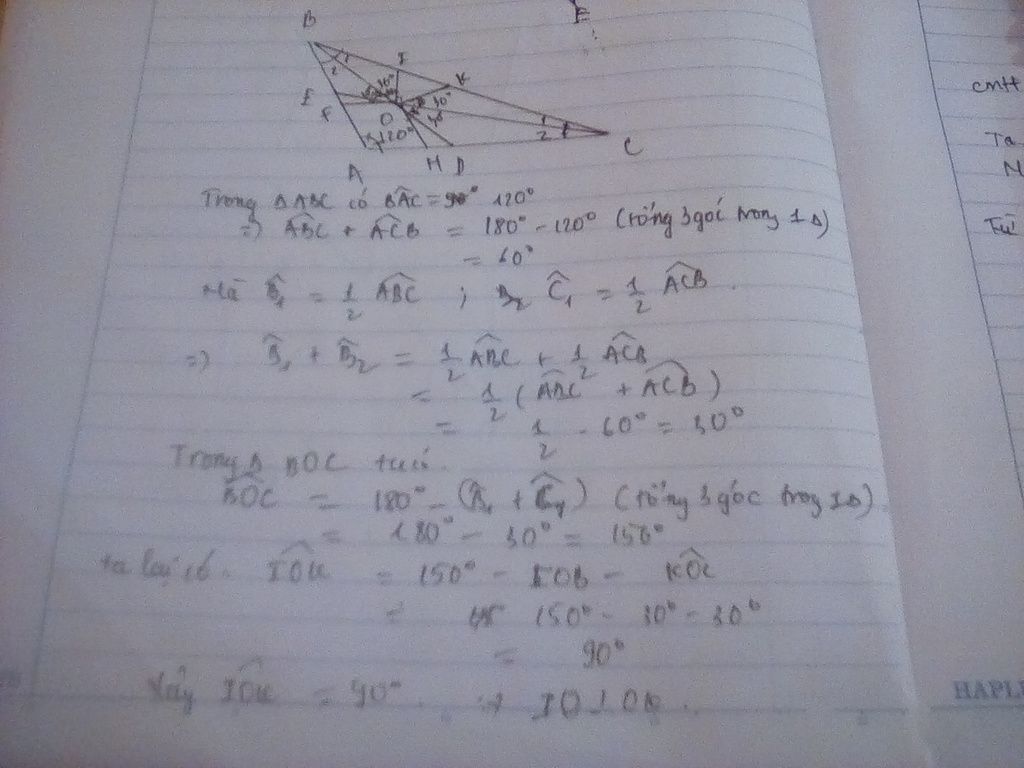 B
I
K
E
F
O
120°
A
H
D
C
1
2
Trong Δ ABC có BAC = 90° 120°
=> ABC + ACB = 180° - 120° (tổng 3 góc trong 1 Δ)
= 60°
Mà B₁ = 1/2 ABC ; B₂ C₁ = 1/2 ACB.
=> B₁ + B₂ = 1/2 ABC + 1/2 ACB
= 1/2 (ABC + ACB)
= 1/2 . 60° = 30°
Trong Δ BOC
BOC = 180° - (B₁ + C₁) (tổng 3 góc trong 1Δ).
= 180° - 30° = 150°
ta lại có. IOK = 150° - IOB - KOC
= 150° - 30° - 30°
= 90°
Vậy IOK = 90° => IO⊥OK.
E
cmtt
Ta
Từ
HAPL